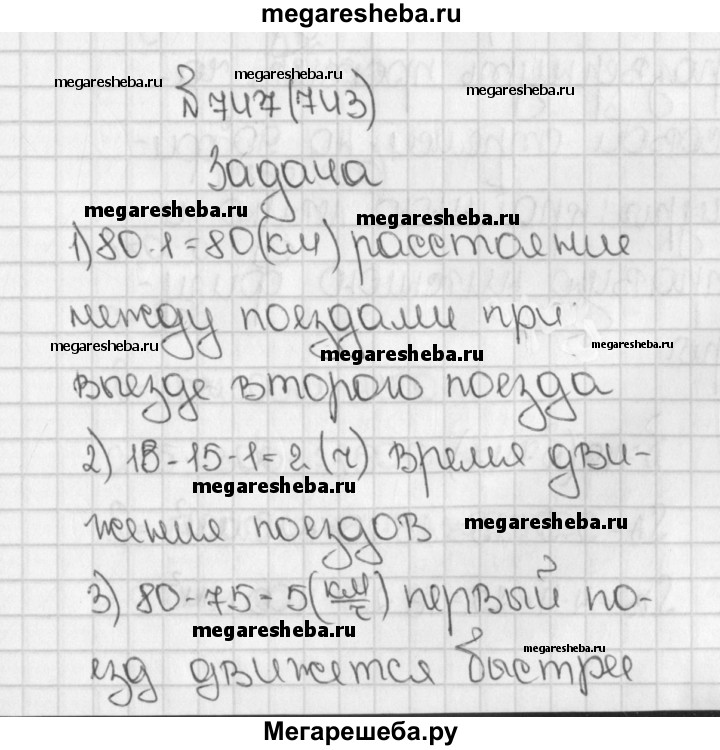 megaresheba.ru
megaresheba.ru megaresheba.ru megaresheba.ru
№ 747 (743)
Задача
megaresheba.ru megaresheba.ru
1) 80·1=80(км) расстояние
между поездами при
megaresheba.ru megaresheba.ru megaresheba.ru
выезде второго поезда
2) 18-15-1=2 (ч) время дви-
megaresheba.ru
жения поездов megaresheba.ru
3) 80-75=5(км/ч) первый по-
megaresheba.ru megaresheba.ru
езд движется быстрее
Мегарешеба.ру